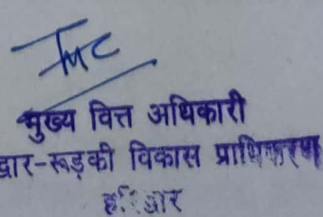 मुख्य वित्त अधिकारी
द्वार-रूड़की विकास प्राधिकरण
हरिद्वार